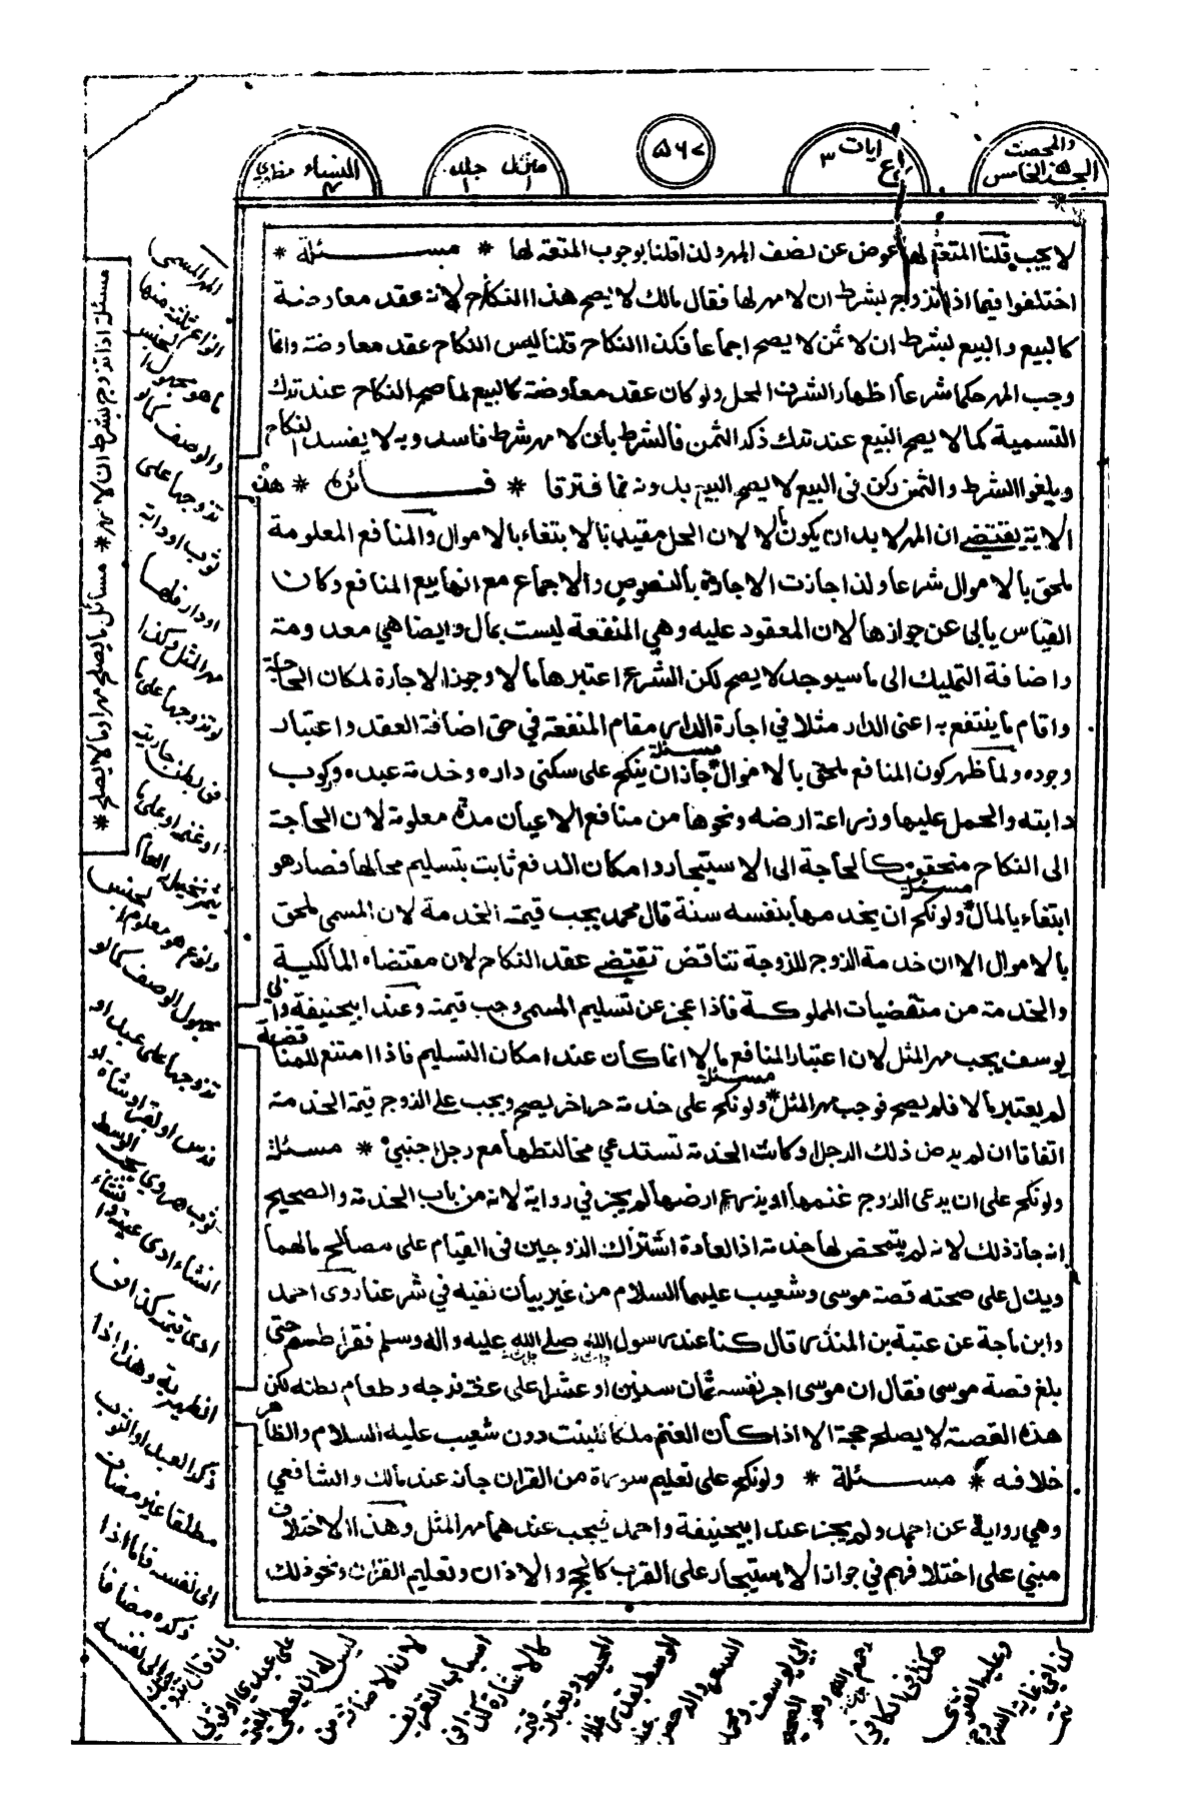 والمحصنت
الجزء الخامس
ايات ٣
ع
٥٦٧
منزل ١ جلد ١
النساء ٤ مظهري
لا يجب قلنا المتعة لها عوض عن نصف المهر ولذا قلنا بوجوب المتعة لها * مسئلة *
اختلفوا فيما اذا تزوج بشرط ان لا مهر لها فقال مالك لا يصح هذا النكاح لانه عقد معاوضة
كالبيع والبيع بشرط ان لا ثمن لا يصح اجماعا فكذا النكاح قلنا ليس النكاح عقد معاوضة وانما
وجب المهر حكما شرعا اظهار الشرف المحل ولو كان عقد معاوضة كالبيع لما صح النكاح عند ترك
التسمية كما لا يصح البيع عند ترك ذكر الثمن فالشرط بان لا مهر شرط فاسد وبه لا يفسد النكاح
ويلغوا الشرط والثمن ركن فى البيع لا يصح البيع بدونه فما فترقا * فائدة * هذه
الاية يقتضے ان المهر لا بد ان يكون مالا لان الحل مقيد بالابتغاء بالاموال والمنافع المعلومة
ملحق بالاموال شرعا ولذا جازت الاجارة بالنصوص والاجماع مع انها بيع المنافع وكان
القياس يابى عن جوازها لان المعقود عليه وهي المنفعة ليست بمال وايضا هي معدومة
واضافة التمليك الى ما سيوجد لا يصح لكن الشرع اعتبرها مالا وجوز الاجارة لمكان الحاجة
واقام ما ينتفع به اعنى الدار مثلا في اجارة الدار مقام المنفعة في حق اضافة العقد واعتبار
وجوده ولما ظهر كون المنافع ملحق بالاموال مسئلة جاز ان ينكح على سكنى داره وخدمة عبده وركوب
دابته والحمل عليها وزراعة ارضه ونحوها من منافع الاعيان مدة معلومة لان الحاجة
الى النكاح متحقق كالحاجة الى الاستيجار وامكان الدفع ثابت بتسليم محالها فصار هو
ابتغاء بالمال مسئلة ولو نكح ان يخدمها بنفسه سنة قال محمد يجب قيمة الخدمة لان المسمى ملحق
بالاموال الا ان خدمة الزوج للزوجة تناقض تقتضے عقد النكاح لان مقتضاه المالكية
والخدمة من مقتضيات المملوكية فاذا عجز عن تسليم المسمى وجب قيمته وعند ابيحنيفة وابى
يوسف يجب مهر المثل لان اعتبار المنافع مالا انما كان عند امكان التسليم فاذا امتنع للمناقضة
لم يعتبر مالا فلم يصح فوجب مهر المثل * مسئلة ولو نكح على خدمة حر اخر يصح ويجب على الزوج قيمة الخدمة
اتفاقا ان لم يرض ذلك الرجل او كانت الخدمة تستدعي مخالطتها مع رجل اجنبي * مسئلة
ولو نكح على ان يرعى الزوج غنمها او يزرع ارضها لم يجز في رواية لانه من باب الخدمة والصحيح
انه جاز ذلك لانه لم يتمحض لها خدمة اذ العادة اشتراك الزوجين فى القيام على مصالح مالهما
ويدل على صحته قصة موسى وشعيب عليهما السلام من غير بيان نفيه في شرعنا روى احمد
وابن ماجة عن عتبة بن المنذر قال كنا عند رسول الله صلى الله عليه واله وسلم فقرا طسم حتى
بلغ قصة موسى فقال ان موسى اجر نفسه ثمان سنين او عشرا على عفة فرجه وطعام بطنه لكن
هذه القصة لا يصلح حجة الا اذا كان الغنم ملكا للبنت دون شعيب عليه السلام والظاهر
خلافه * مسئلة * ولو نكح على تعليم سورة من القران جاز عند مالك والشافعي
وهي رواية عن احمد ولم يجز عند ابيحنيفة واحمد فيجب عندهما مهر المثل وهذا الاختلاف
مبني على اختلافهم في جواز الاستيجار على القرب كالحج والاذان وتعليم القران ونحو ذلك
مسئلة اذا تزوج بشرط ان لا مهر * مسائل ما يصلح مهرا وما لا يصلح *
المهر المسمى
انواع ثلثة منها
ما هو مجهول الجنس
والوصف كما لو
تزوجها على
ثوب او دابة
او دار فلها
مهر المثل وكذا
لو تزوجها على ما
فى بطن جاريته
او غنمه او على ما
يثمر نخيله العام
ونوع هو معلوم الجنس
مجهول الوصف كما لو
تزوجها على عبد او
فرس او بقر او شاة او
ثوب هروي يجب الوسط
ان شاء ادى عينه وان شاء
ادى قيمته كذا في
الظهيرية وهذا اذا
ذكر العبد او الثوب
مطلقا غير مضاف
الى نفسه فاما اذا
ذكره مضافا
الى نفسه
بان قال
على عبدي او ثوبي
ليس له ان يعطي
لان الاضافة من
اسباب التعريف
كالاشارة كذا في
المحيط ويعتبر
الوسط بقدر
السعر والرخص
ابي يوسف ومحمد
رحمهم الله وهو
هكذا في الكافي
وعليه الفتوى
كذا في غاية السروجي